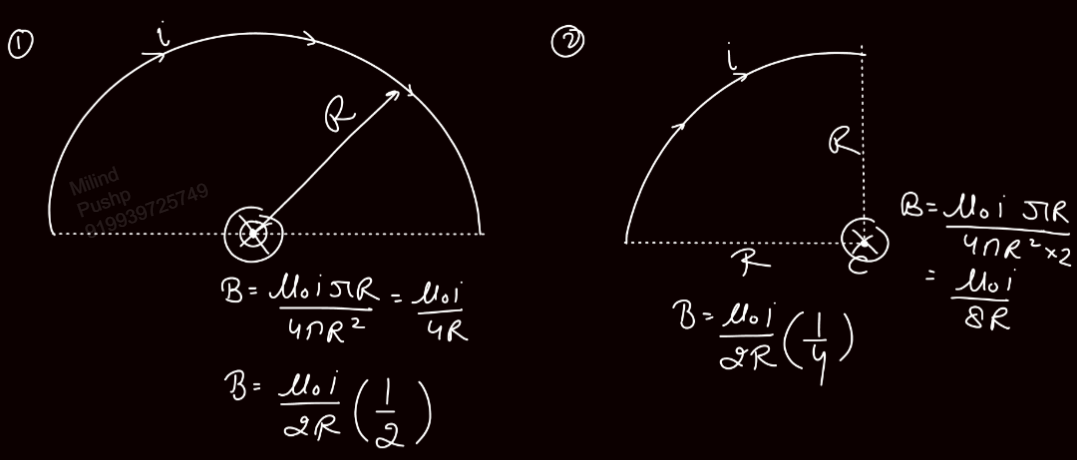 ①
i
R
Milind
Pushp
919939725749
B = μ₀ i πR / 4πR² = μ₀ i / 4R
B = μ₀ i / 2R (1/2)
②
i
R
R
C
B = μ₀ i πR / 4πR² × 2
= μ₀ i / 8R
B = μ₀ i / 2R (1/4)